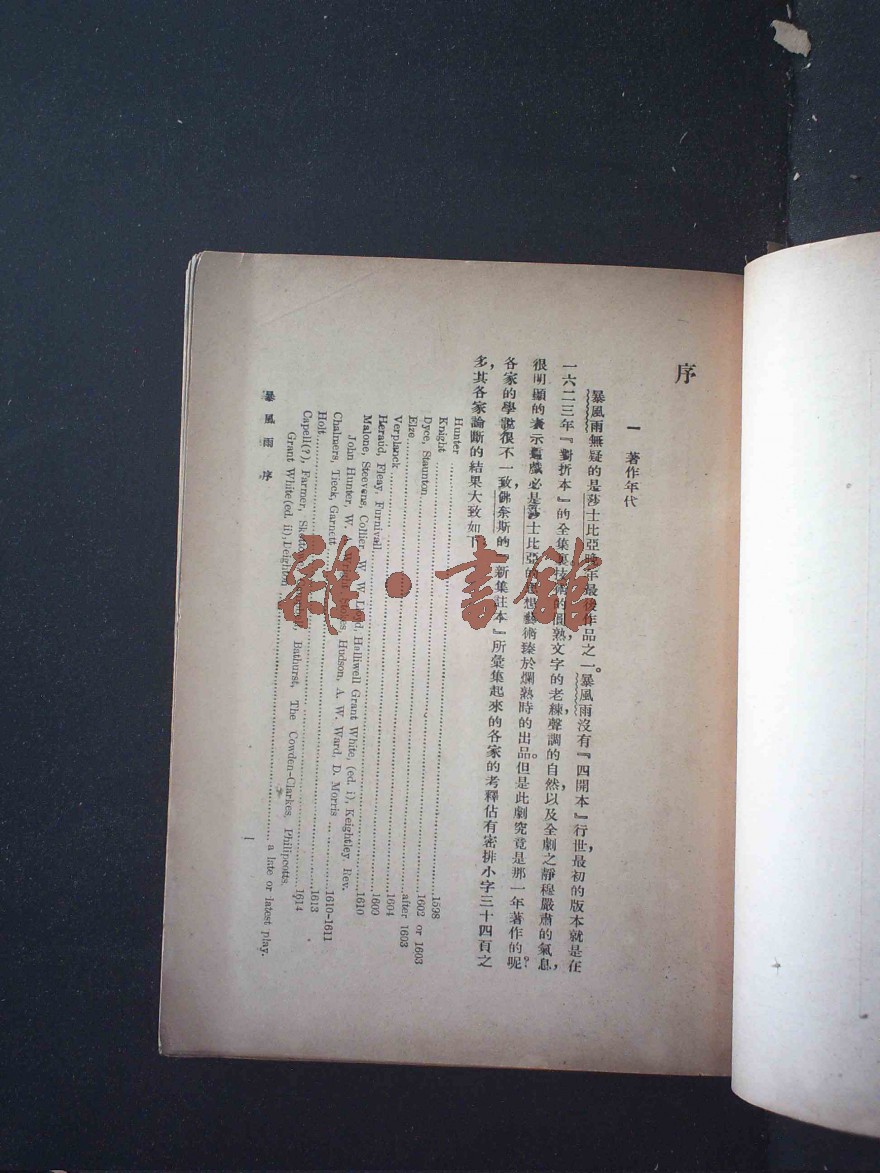 序
一 著作年代
暴風雨無疑的是莎士比亞晚年最後作品之一。暴風雨沒有『四開本』行世，最初的版本就是在
一六二三年『對折本』的全集裏，技術的圓熟，文字的老練，聲調的自然，以及全劇之靜穆嚴肅的氣息，
很明顯的表示這戲必是莎士比亞的思想藝術臻於爛熟時的出品。但是此劇究竟是那一年著作的呢？
各家的學說很不一致，佛奈斯的『新集註本』所彙集起來的各家的考釋佔有密排小字三十四頁之
多，其各家論斷的結果大致如下：
Hunter 1598
Knight 1602 or 1603
Dyce, Staunton after 1603
Elze 1604
Verplanck 1609
Heraud, Fleay, Furnivall 1610
Malone, Steevens, Collier, W. W. Lloyd, Halliwell Grant White, (ed. i), Keightley, Rev.
John Hunter, W. Wright Hudson, A. W. Ward, D. Morris 1610-1611
Chalmers, Tieck, Garnett 1613
Holt 1614
Capell(?), Farmer, Bathurst, The Cowden-Clarkes, Philipcotts.
Grant White(ed. ii), Deighton a late or latest play.
暴風雨 序
1
雜·書館